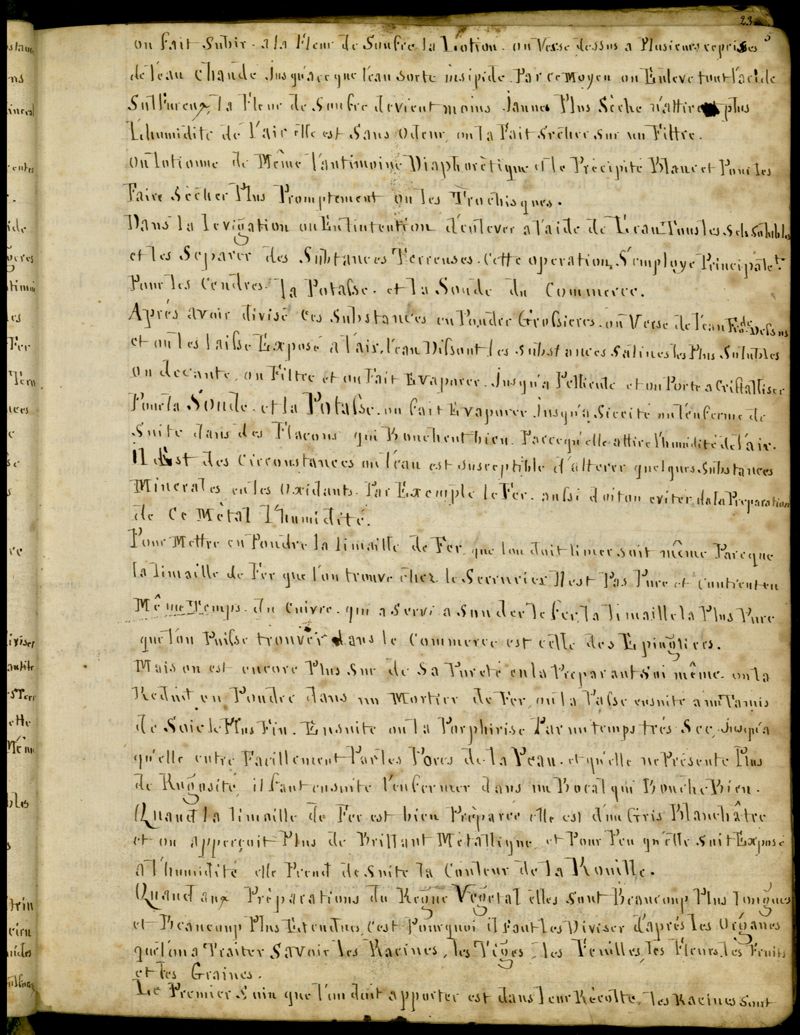 23
on fait subir. a la Fleur de Soufre la Lotion. on Verse dessus a Plusieurs reprises
de leau Chaude Jusqu'a ce que l'eau sorte insipide. Par ce Moyen on Enleve tout l'acide
Sulfureux, la Fleur de Soufre devient moins Jaune Plus Sèche n'attire plus
L'humidité de l'air elle est Sans odeur, on la Fait Sècher Sur un Filtre.
On lotionne de Même l'antimoine Diaphorètique et le Prècipité Blanc et Pour les
Faire Sècher Plus Promptement on les Trochisques.
Dans la levigation on En l'intention d'enlever a l'aide de l'eau Tous les Sels Solubles
et les Separer des Substances Terreuses. Cette operation S'employe Principalet.
Pour les Cendres. la Potasse. et la Soude du Commerce.
Après avoir divisé Ces Substances en Poudre Grossieres. on Verse de l'eau Dessus
et on les laisse Exposé a l'air, l'eau Dissout les substances salines les Plus Solubles
on decante, on Filtre et on Fait Evaporer. Jusqu'a Pellicule et on Porte a Cristalliser
Pour la Soude. et la Potasse. on fait Evaporer Jusqu'a Siccité on l'enferme de
Suite dans des Flacons qui Bouchent bien. Parcequ'elle attire l'humidité de l'air.
Il Est des Circonstances ou l'eau est susceptible d'alterer quelques Substances
Minerales en les Oxidants. Par Exemple le Fer. aussi doit on eviter. da la Preparation
de Ce Mètal l'humidité.
Pour Mettre en Poudre la limaille de Fer que lon doit limer soit même Parceque
la limaille de Fer que l'on trouve chez le Serrurier N'est Pas Pure et Contient en
Même Temps. du Cuivre. qui a Servi a Souder le fer. la limaille la Plus Pure
que l'on Puisse trouver dans le Commerce est celle des Epingliers.
Mais on est encore Plus Sur de Sa Pureté en la Preparant Soi même. on la
Reduit en Poudre dans un Mortier de Fer, on la Passe ensuite a un Tamis
de Soie le Plus Fin. Ensuite on la Porphirise Par un temps très Sec, Jusqu'a
qu'elle entre Facillement Par les Pores de la Peau. et qu'elle ne Prèsente Plus
de Rugosité, il faut ensuite l'enfermer dans un Bocal qui Bouche Bien.
Quand la limaille de Fer est bien Prèparée elle est d'un Gris Blanchâtre
et on apperçoit Plus de Brillant Mètallique, et Pour Peu qu'elle Soit Exposé
a l'humidité elle Prend de Suite la Couleur de la Rouille.
Quand aux Prèparations du Règne Vègetal elles Sont Beaucoup Plus longues
et Beaucoup Plus Etendues, C'est Pourquoi il Faut les Diviser d'après les Organes
que l'on a Traiter Savoir les Racines, les Tiges, les Feuilles, les Fleurs, les Fruits
et les Graines.
Le Premier Soin que l'on doit apporter est dans leur Rècolte, les Racines Sont